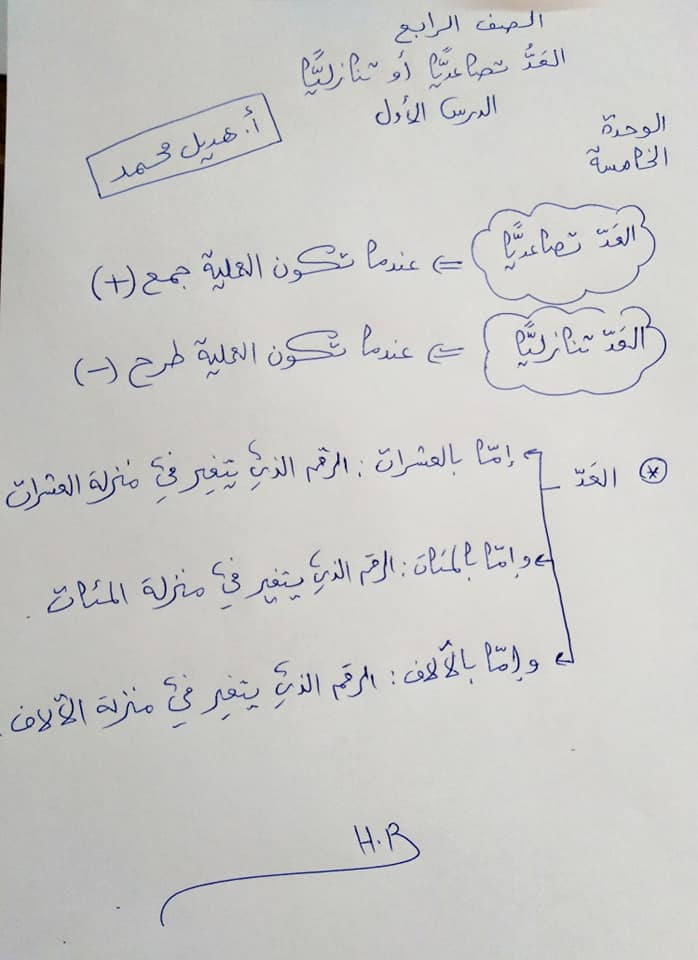 الصف الرابع
العَدُّ تصاعديًّا أو تنازليًّا
الدرس الأول
الوحدة
الخامسة
أ. هديل محمد
العَدّ تصاعديًّا ⇐ عندما تكون العملية جمع (+)
العَدّ تنازليًّا ⇐ عندما تكون العملية طرح (-)
* العَدّ
إمّا بالعشرات : الرقم الذي يتغير في منزلة العشرات
وإمّا بالمئات : الرقم الذي يتغير في منزلة المئات .
وإمّا بالآلاف : الرقم الذي يتغير في منزلة الآلاف .
H.B